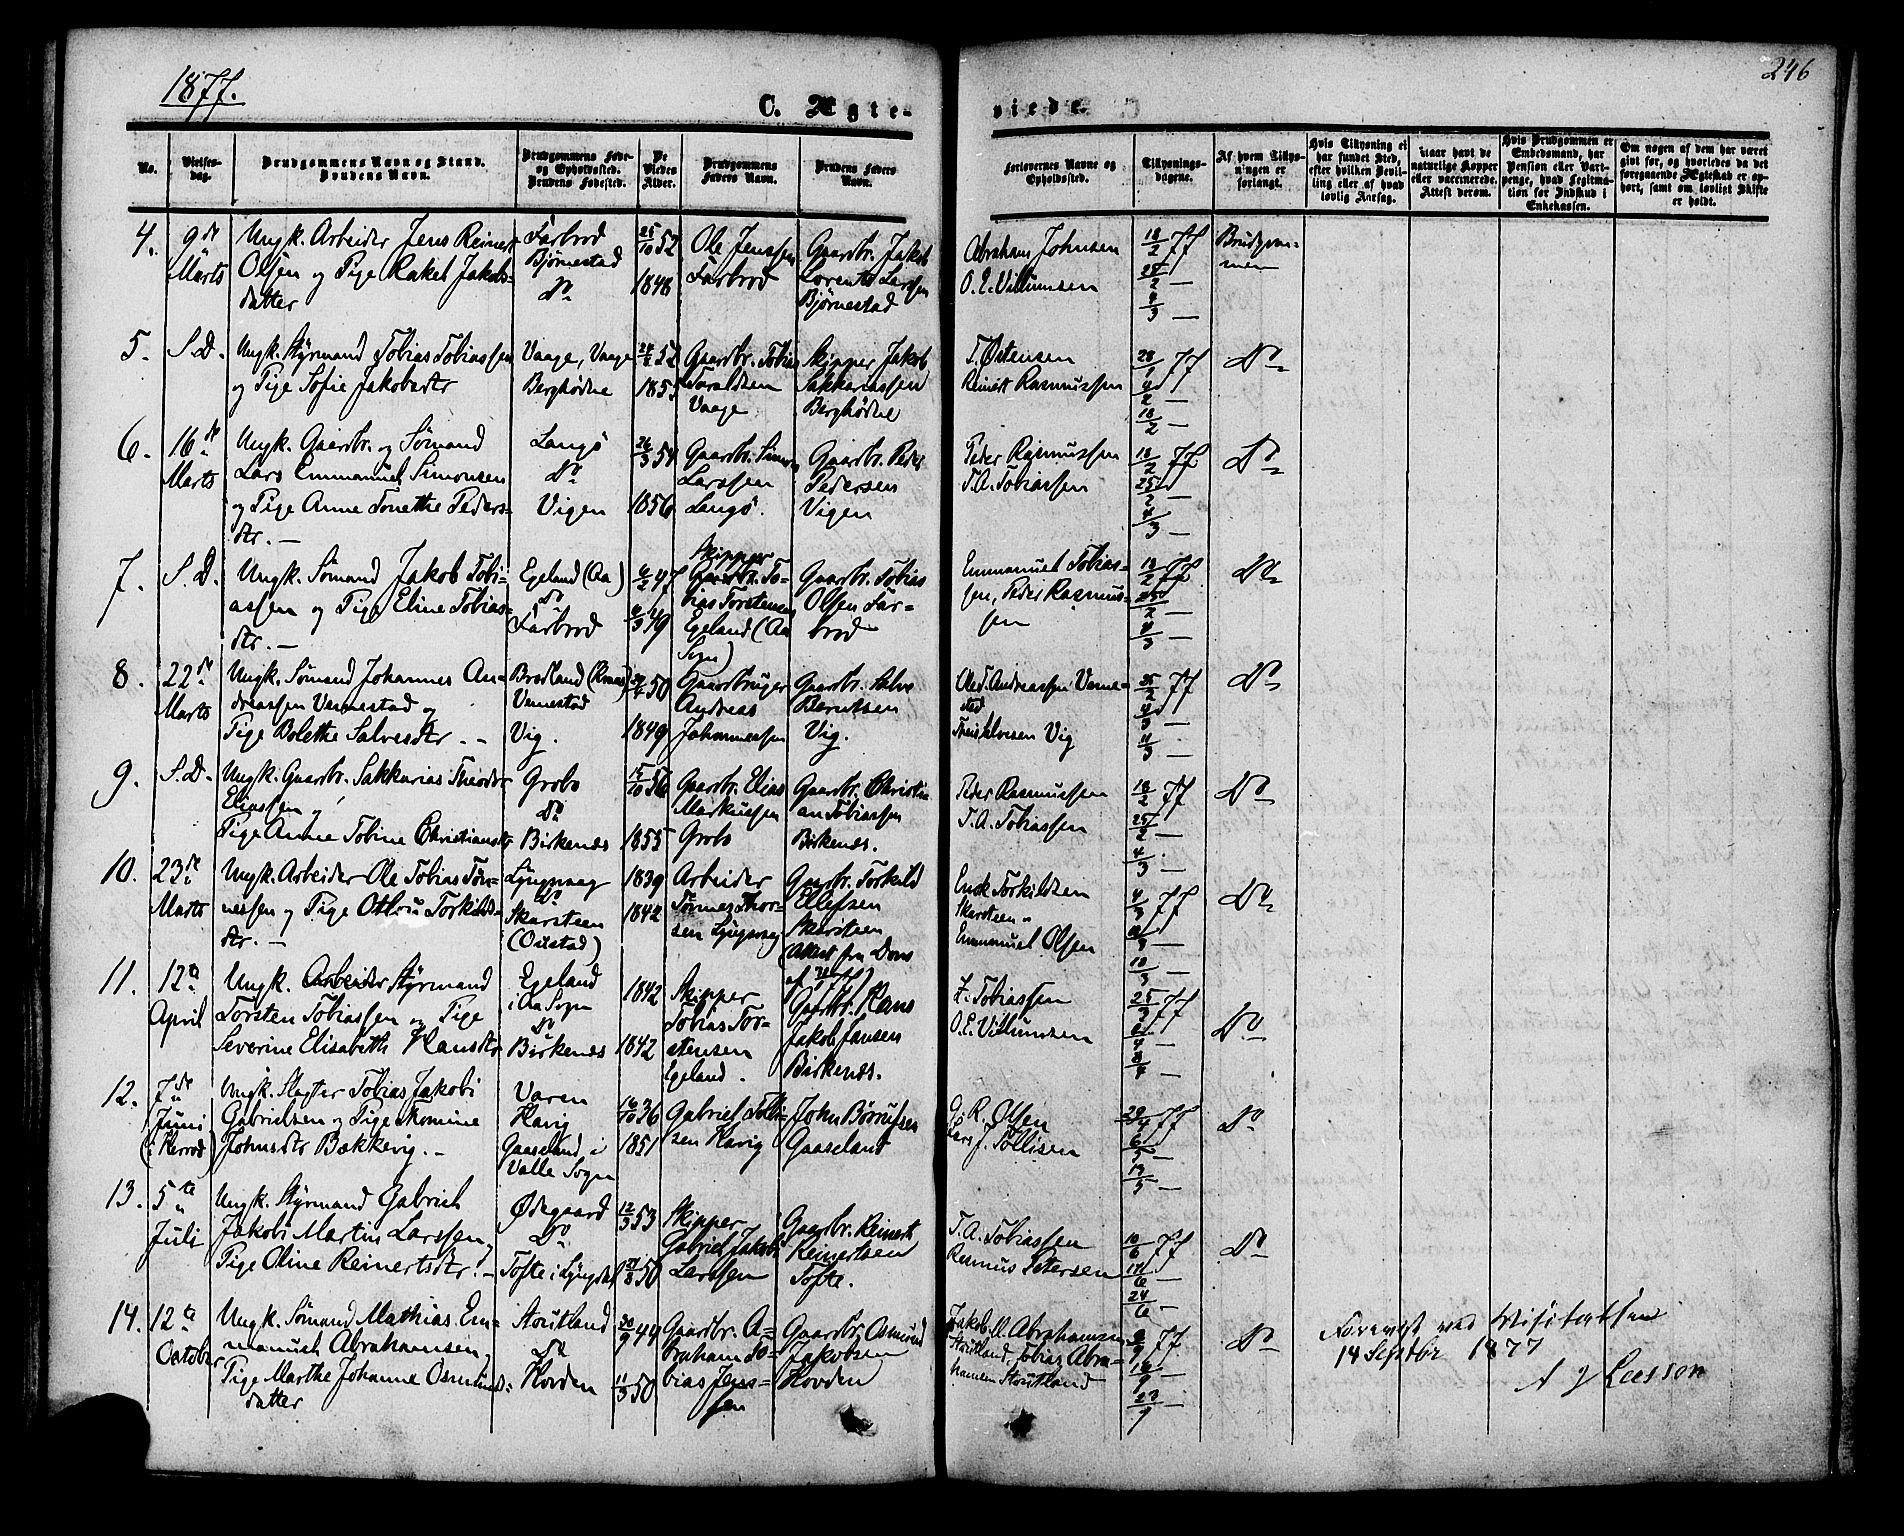 1877.
246
C. Ægteviede.
No.
Vielses-dag.
Brudgommens Navn og Stand.
Brudens Navn.
Brudgommens Føde- og Opholdssted.
Brudens Fødested.
De Viedes Alder.
Brudgommens Faders Navn.
Brudens Faders Navn.
Forlovernes Navne og Opholdssted.
Tillysnings-dagene.
Af hvem Tillysningen er forlangt.
Hvis Tillysning ei har fundet Sted, efter hvilken Bevilling eller af hvad lovlig Aarsag.
Naar havt de naturlige Kopper eller vaccinerede. Attest derom.
Hvis Brudgommen er Embedsmand, har Pension eller Vartpenge, hvad Legitimation for Indskud i Enkekassen.
Om nogen af dem har været givt før, og hvorledes da det foregaaende Ægteskab er ophørt, samt om lovligt Skifte er holdt.
4. 9de Marts
Ungk. Arbeider Jens Reinert
Olsen og Pige Rakel Jakobs-
datter
Farbrod
Bjørnestad
Do
25/10 52
1848
Ole Jenssen
Farbrod
Gaardbr. Jakob
Lorents Larssen
Bjørnestad
Abraham Johnsen
O. E. Villumsen
18/2 77
25/2 —
4/3 —
Brudgom-
men
5. S. D.
Ungk. Styrmand Tobias Tobiassen
og Pige Sofie Jakobsdtr
Vaage, Vaage
Berghødne
52
1853
Gaardbr. Tobias
Taraldsen
Vaage
Skipper Jakob
Sakkariassen
Berghødne
T. Østensen
Reinert Rasmussen
28/1 77
4/2 —
18/2 —
Do
6. 16de Marts
Ungk. Gaardbr. og Sømand
Lars Emmanuel Simonsen
og Pige Anne Tonette Peders-
dtr. —
Langø
Do
Vigen
26/3 54
1856
Gaardbr. Simon
Larssen
Langø.
Gaardbr. Peder
Pedersen
Vigen
Peder Rasmussen
T. A. Tobiassen
18/2 77
25/2 —
4/3 —
Do
7. S. D.
Ungk. Sømand Jakob Tobi-
assen og Pige Eline Tobias-
dtr. —
Egeland (Aa)
Do
Farbrod
6/2 47
49
Skipper
Gaardbr. To-
bias Torstensen
Egeland (Aa
Sogn)
Gaardbr. Tobias
Olsen Far-
brod
Emmanuel Tobias-
sen, Peder Rasmus-
sen
18/2 77
25/2 —
4/3 —
Do
8. 22de Marts
Ungk. Sømand Johannes An-
dreassen Vemestad og
Pige Bolette Salvesdtr. —
Brødland
Vemestad
Vig.
50
1849
Gaardbruger
Andreas
Johannessen
Gaardbr. Salve
Berntsen
Vig.
Andreassen Veme-
stad
Salvesen Vig
25/2 77
4/3 —
11/3 —
Do
9. S. D.
Ungk. Gaardbr. Sakkarias Theodor
Eliassen og
Pige Anne Tobine Christiansdtr
Grobs
Do
Birkenes
15/10 56
1855
Gaardbr. Elias
Markussen
Grobs
Gaardbr. Christi-
an Tobiassen
Birkenes.
Peder Rasmussen
T. A. Tobiassen
18/2 77
25/2 —
4/3 —
Do
10. 23de Marts
Ungk. Arbeider Ole Tobias Tøn-
nessen og Pige Torkilds-
dtr. —
Lyngsvaag
Do
Skarsteen
(Oustad)
1839
1842
Arbeider
Tønnes Thor-
sen Lyngsvaag
Gaardbr. Torkild
Ellefsen
Skarsteen
(Attest fra Dons
af
Enok Torkildsen
Skarsteen
Emmanuel Olsen
4/3 77
—
18/3 —
Do
11. 12te April
Ungk. Arbeider Styrmand
Torsten Tobiassen og Pige
Severine Elisabeth Hansdtr
Egeland
i Aa Sogn
Do
Birkenes
1842
1842
Skipper
Tobias Tor-
stensen
Egeland.
Gaardbr. Hans
Jakob Jansen
Birkenes.
Z. Tobiassen
O. E. Villumsen
25/3 77
/4 —
8/4 —
Do
12. 7de Juni
(i Herred)
Ungk. Slagter Tobias Jakobi
Gabrielsen og Pige
Johnsdtr Bækkevig. —
Varen
Havig
Gaaseland i
Valle Sogn
16/10 36
1851
Gabriel
sen Havig
John Børrufsen
Gaaseland
R. Olsen
Lars J. Tøllisen
29/4 77
6/5 —
13/5 —
Do
13. 5te Juli
Ungk. Styrmand Gabriel
Jakobi Martin Larssen og
Pige Oline Reinertsdtr. —
Ødegaard
Do
Tofte i Lyngdal
12/3 53
50
Skipper
Gabriel Jakobi
Larssen
Gaardbr. Reinert
Reinertsen
Tofte.
T. A. Tobiassen
Rasmus Petersen
10/6 77
17/6 —
24/6 —
Do
14. 12te October
Ungk. Sømand Mathias Em-
manuel Abrahamsen og
Pige Marthe Johanne Osmunds-
datter
Stoutland
Do
Hovden
30/9 44
11/3 50
Gaardbr. A-
braham To-
bias Jens-
sen
Gaardbr. Osmund
Jakobsen
Hovden
Jakob M. Abrahamsen
Stoutland, Tobias Abra-
hamsen Stoutland
9/9 77
16/9 —
23/9
Do
Forevist ved Visitatsen
14 Septbr 1877